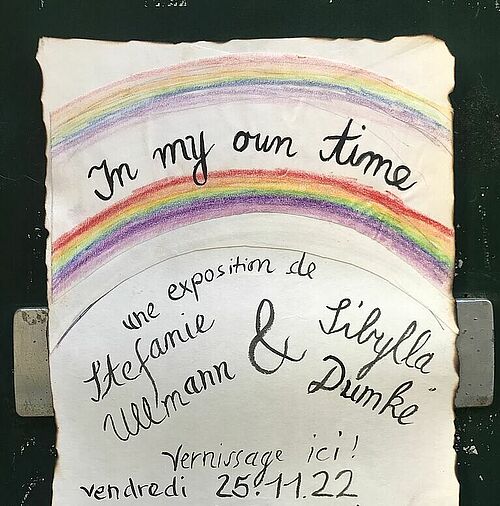 In my own time
une exposition de
Stefanie Ullmann & Sibylla Dumke
Vernissage ici!
vendredi 25.11.22